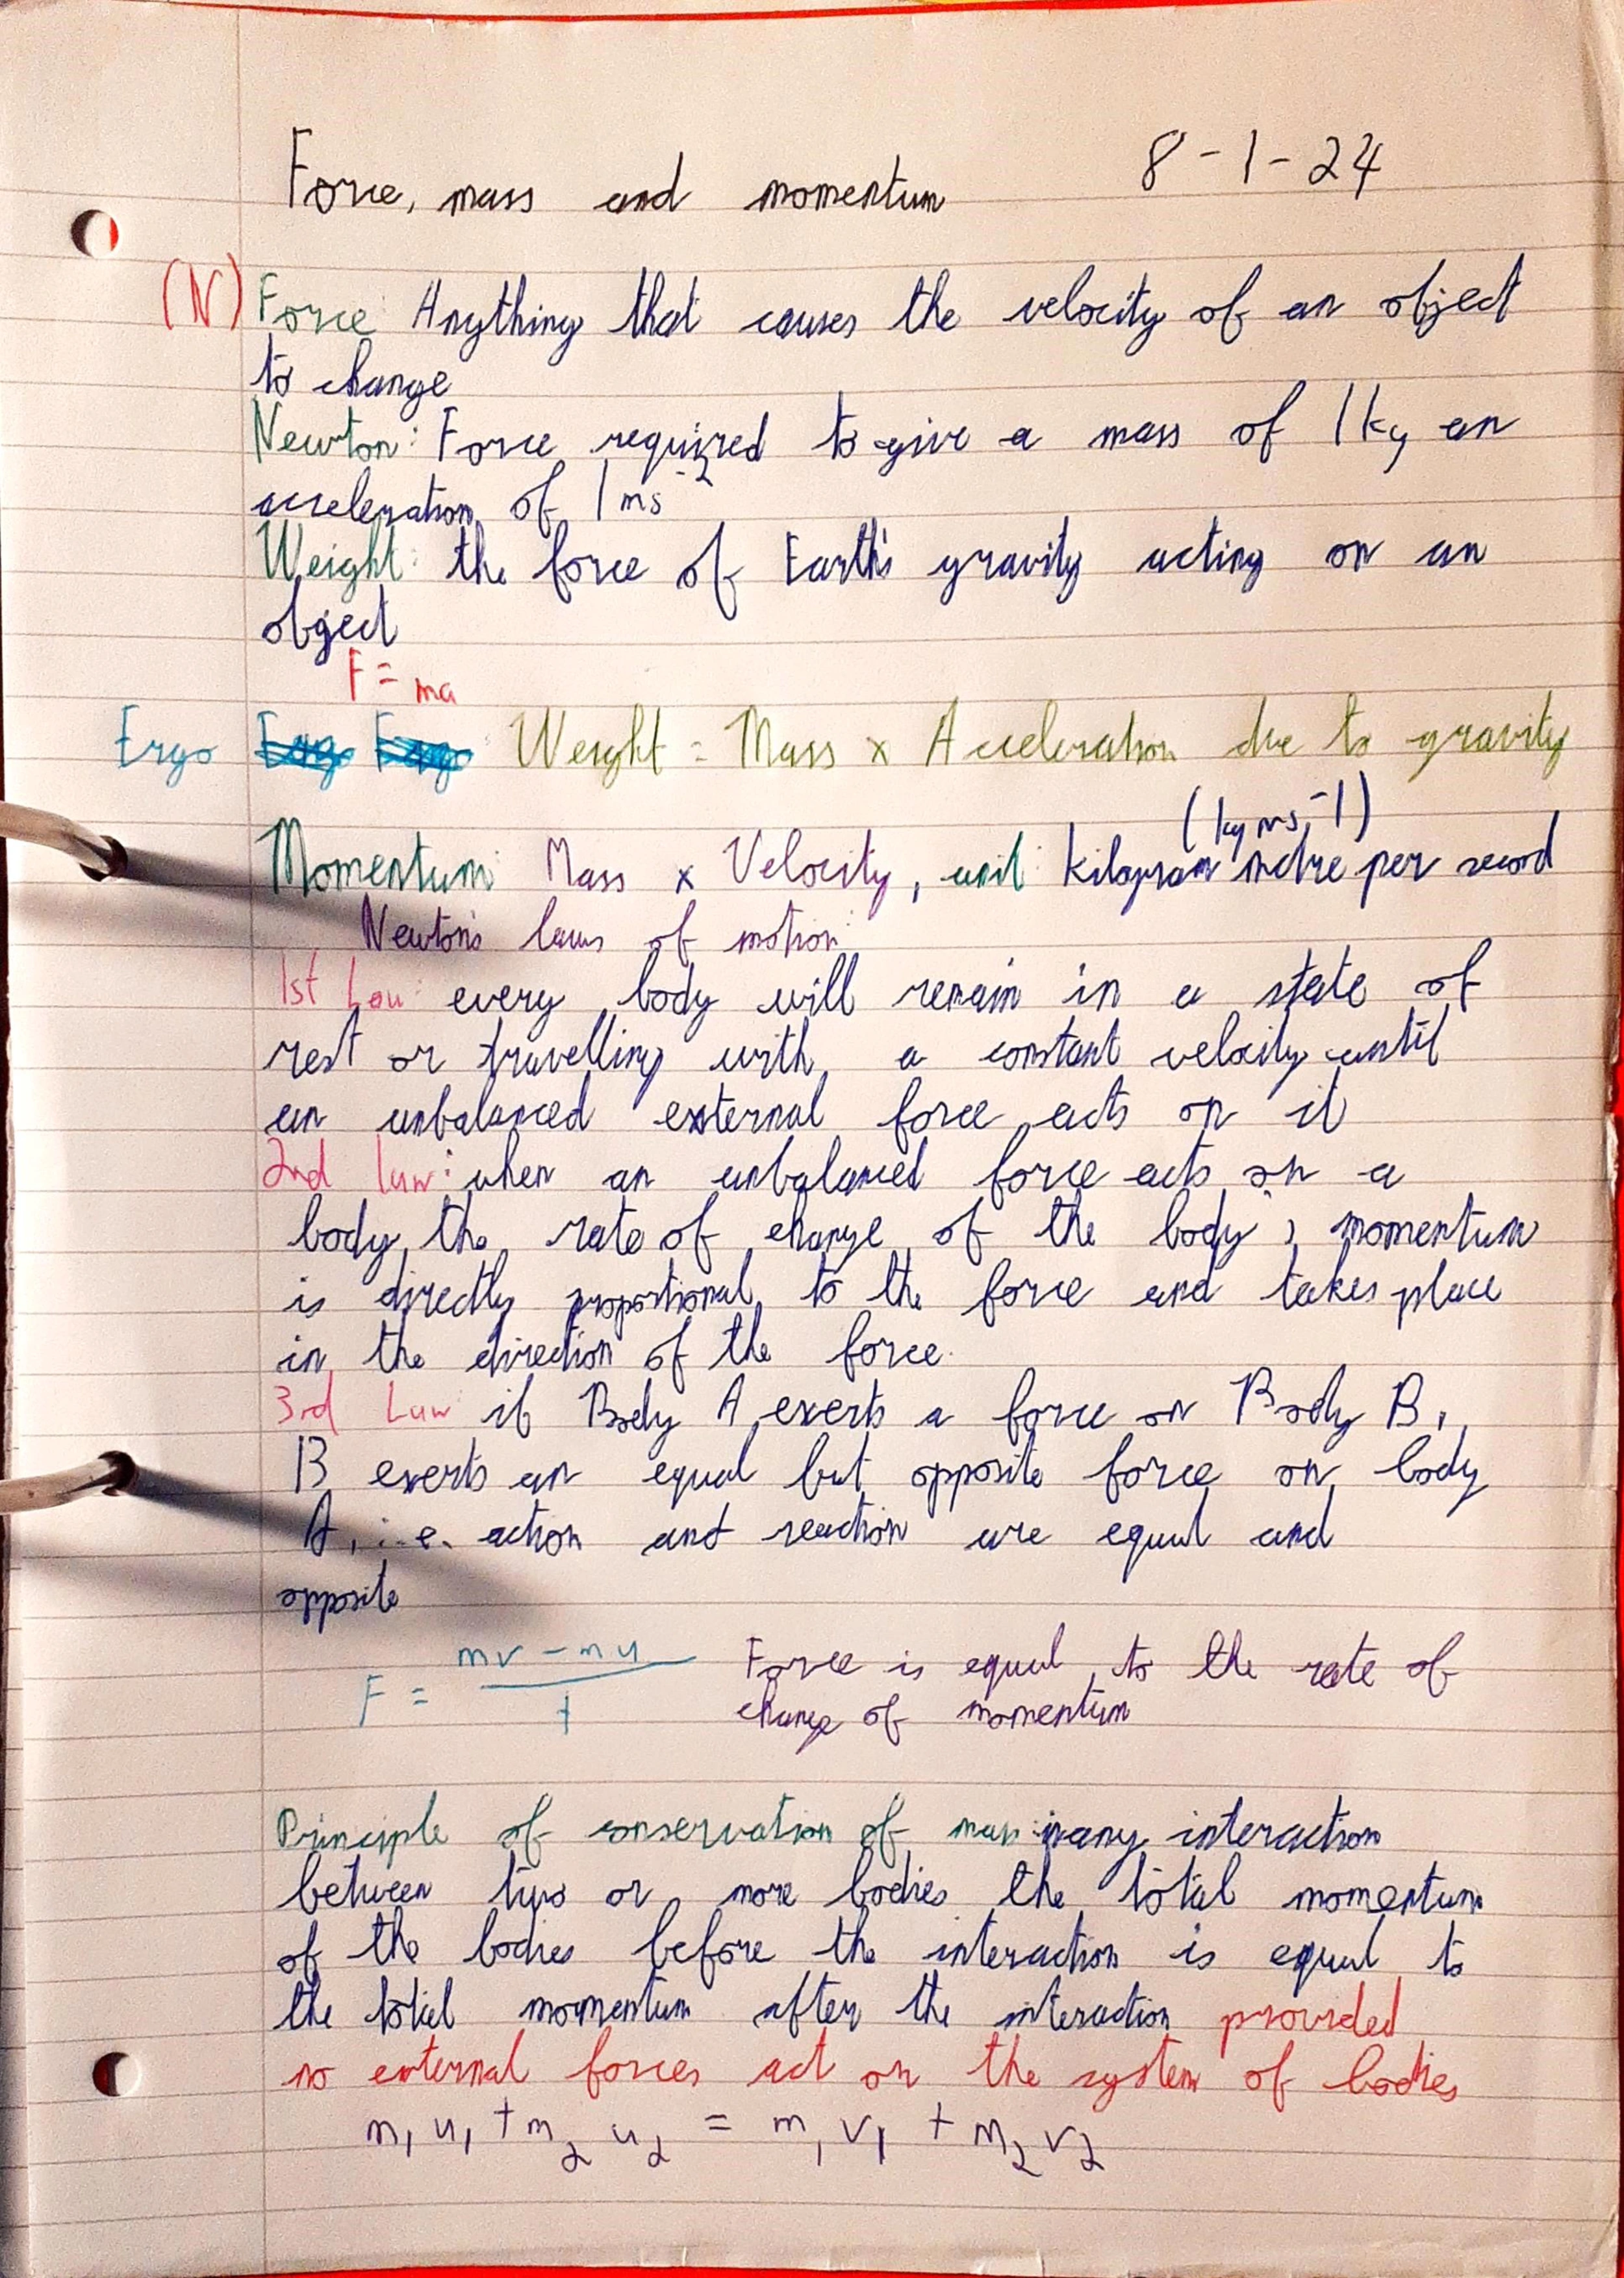 Force, mass and momentum 8-1-24
(N) Force: Anything that causes the velocity of an object
to change
Newton: Force required to give a mass of 1kg an
acceleration of 1ms⁻²
Weight: the force of Earth's gravity acting on an
object
F = ma
Ergo Weight = Mass x Acceleration due to gravity
(kgms⁻¹)
Momentum: Mass x Velocity, unit: kilogram metre per second
Newton's laws of motion:
1st Law: every body will remain in a state of
rest or travelling with a constant velocity until
an unbalanced external force acts on it
2nd law: when an unbalanced force acts on a
body, the rate of change of the body's momentum
is directly proportional to the force and takes place
in the direction of the force.
3rd Law: if Body A exerts a force on Body B,
B exerts an equal but opposite force on body
A, i.e. action and reaction are equal and
opposite
F = mv - mu / t Force is equal to the rate of
change of momentum
Principle of conservation of mass: in any interaction
between two or more bodies the total momentum
of the bodies before the interaction is equal to
the total momentum after the interaction provided
no external forces act on the system of bodies
m₁u₁ + m₂u₂ = m₁v₁ + m₂v₂